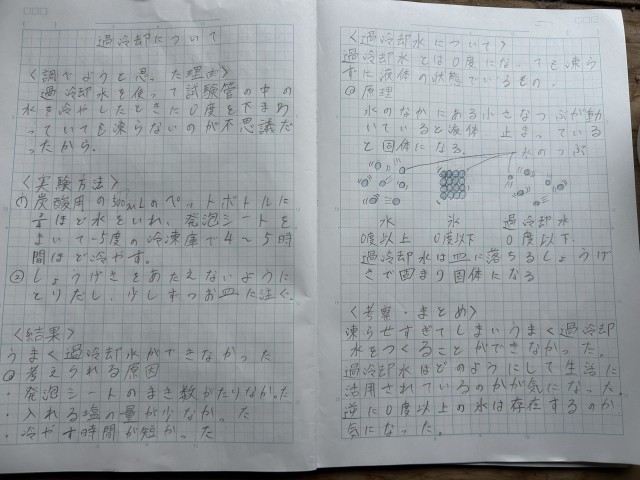 過冷却について
〈調べようと思った理由〉
過冷却水を使って試験管の中の
水を冷やしたときに0度を下まわ
っていても凍らないのが不思議だ
ったから。
〈実験方法〉
① 炭酸用の500mLのペットボトルに
ほど水をいれ、発泡シートを
まいて-5度の冷凍庫で4〜5時
間ほど冷やす。
② しょうげきをあたえないように
とりだし、少しずつお皿に注ぐ。
〈結果〉
うまく過冷却水ができなかった
考えられる原因
・発泡シートのまき数がたりなかった
・入れる塩の量が少なかった
・冷やす時間が短かった
〈過冷却水について〉
過冷却水とは0度になっても凍ら
ずに液体の状態でいるもの。
原理
水のなかにある小さなつぶが動
いていると液体 止まっている
と固体になる。
水のつぶ
水 氷 過冷却水
0度以上 0度以下 0度以下
過冷却水は皿に落ちるしょうげ
きで固まり固体になる
〈考察・まとめ〉
凍らせすぎてしまいうまく過冷却
水をつくることができなかった。
過冷却水はどのようにして生活に
活用されているのかが気になった
逆に0度以上の氷は存在するのか
気になった。